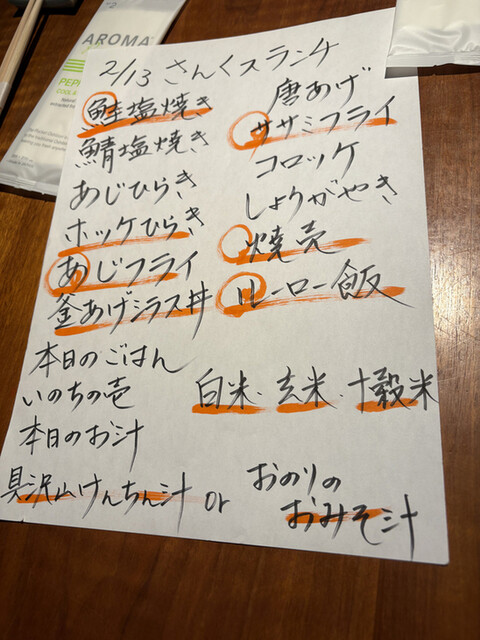 AROMA
PEPP
COOL &
2/13 さんくスランチ
鮭塩焼き
鯖塩焼き
あじひらき
ホッケひらき
あじフライ
釜あげシラス丼
唐あげ
ササミフライ
コロッケ
しょうがやき
焼売
ルーロー飯
本日のごはん
いのちの壱
白米・玄米・十穀米
本日のお汁
具沢山けんちん汁 or おのりのおみそ汁